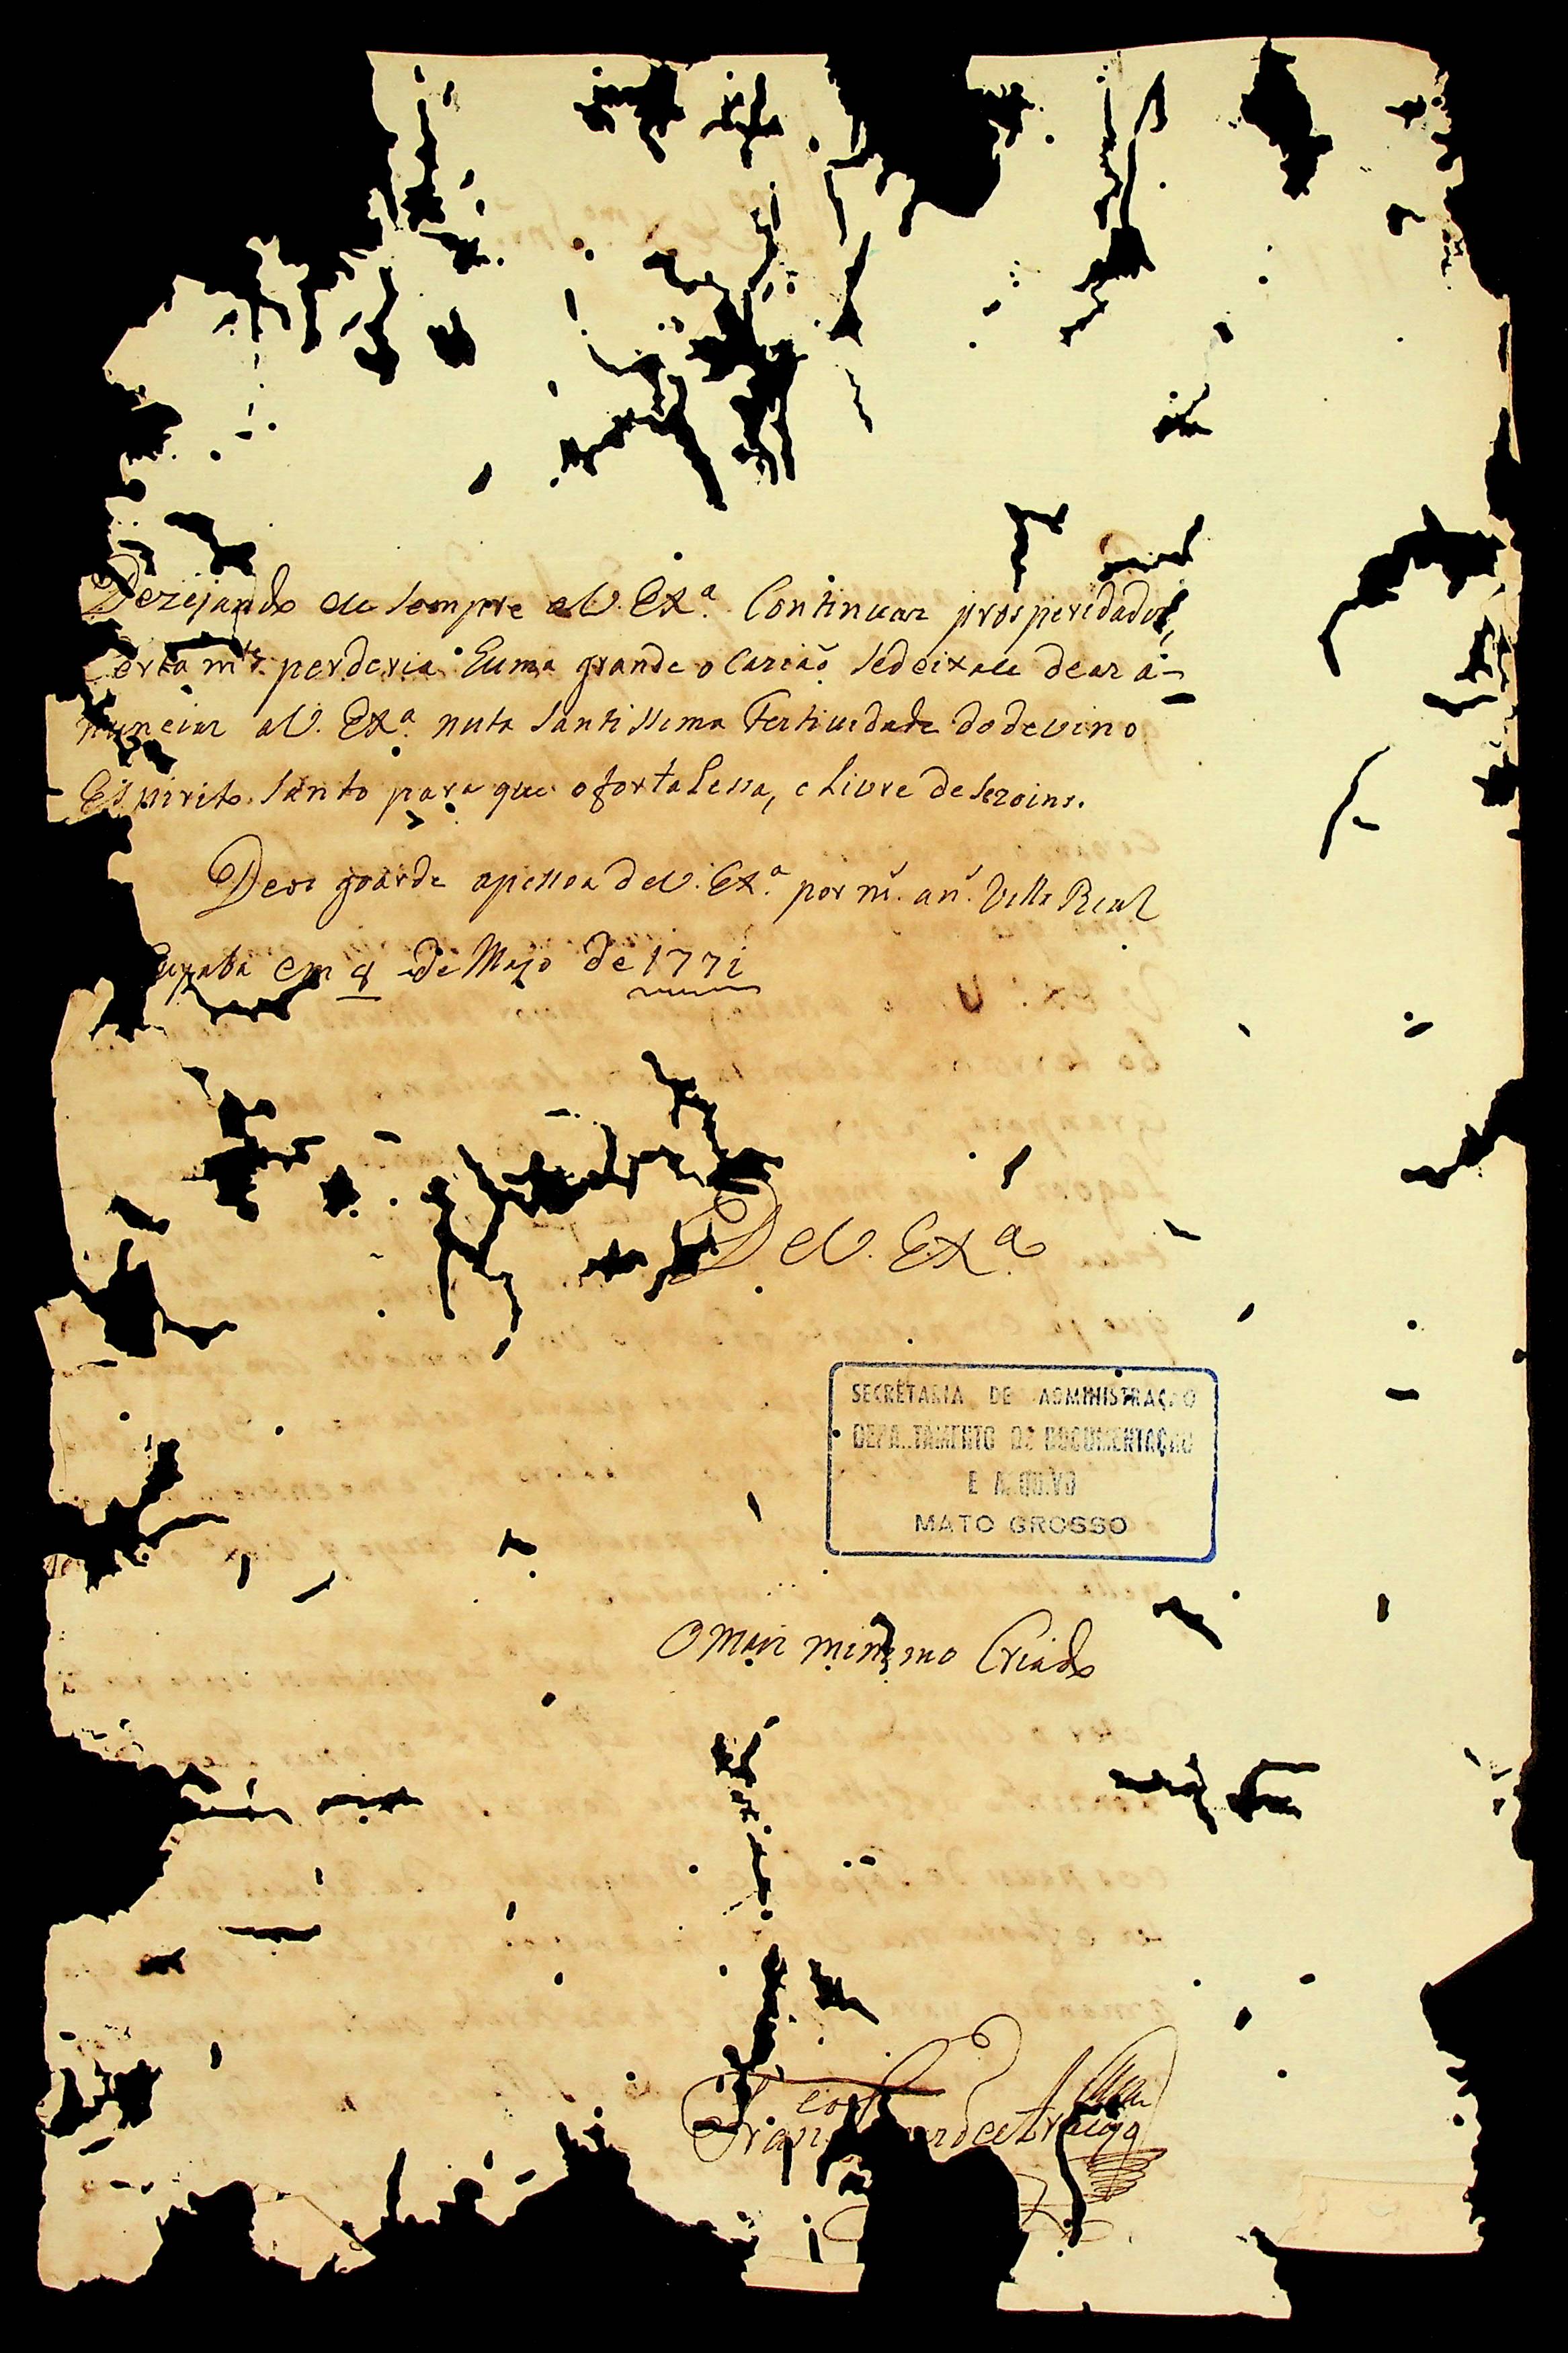 Dezejando eu sempre a V. Exª. Continuar prosperidades,
Certa mte. perderia huma grande ocaziaõ se deixaçe de ar a-
nunciar a V. Exª. nesta Santissima Festividade do devino
Espirito Santo para que o fortalessa, e Livre de Sezoins.
Deos goarde apessoa de V. Exª. por ms. ans. Villa Real
Cuyaba em 8 de Mayo de 1771
De V. Exª.
SECRETARIA DE ADMINISTRAÇÃO
DEPARTAMENTO DE DOCUMENTAÇÃO
E ARQUIVO
MATO GROSSO
O Mais minimo Criado